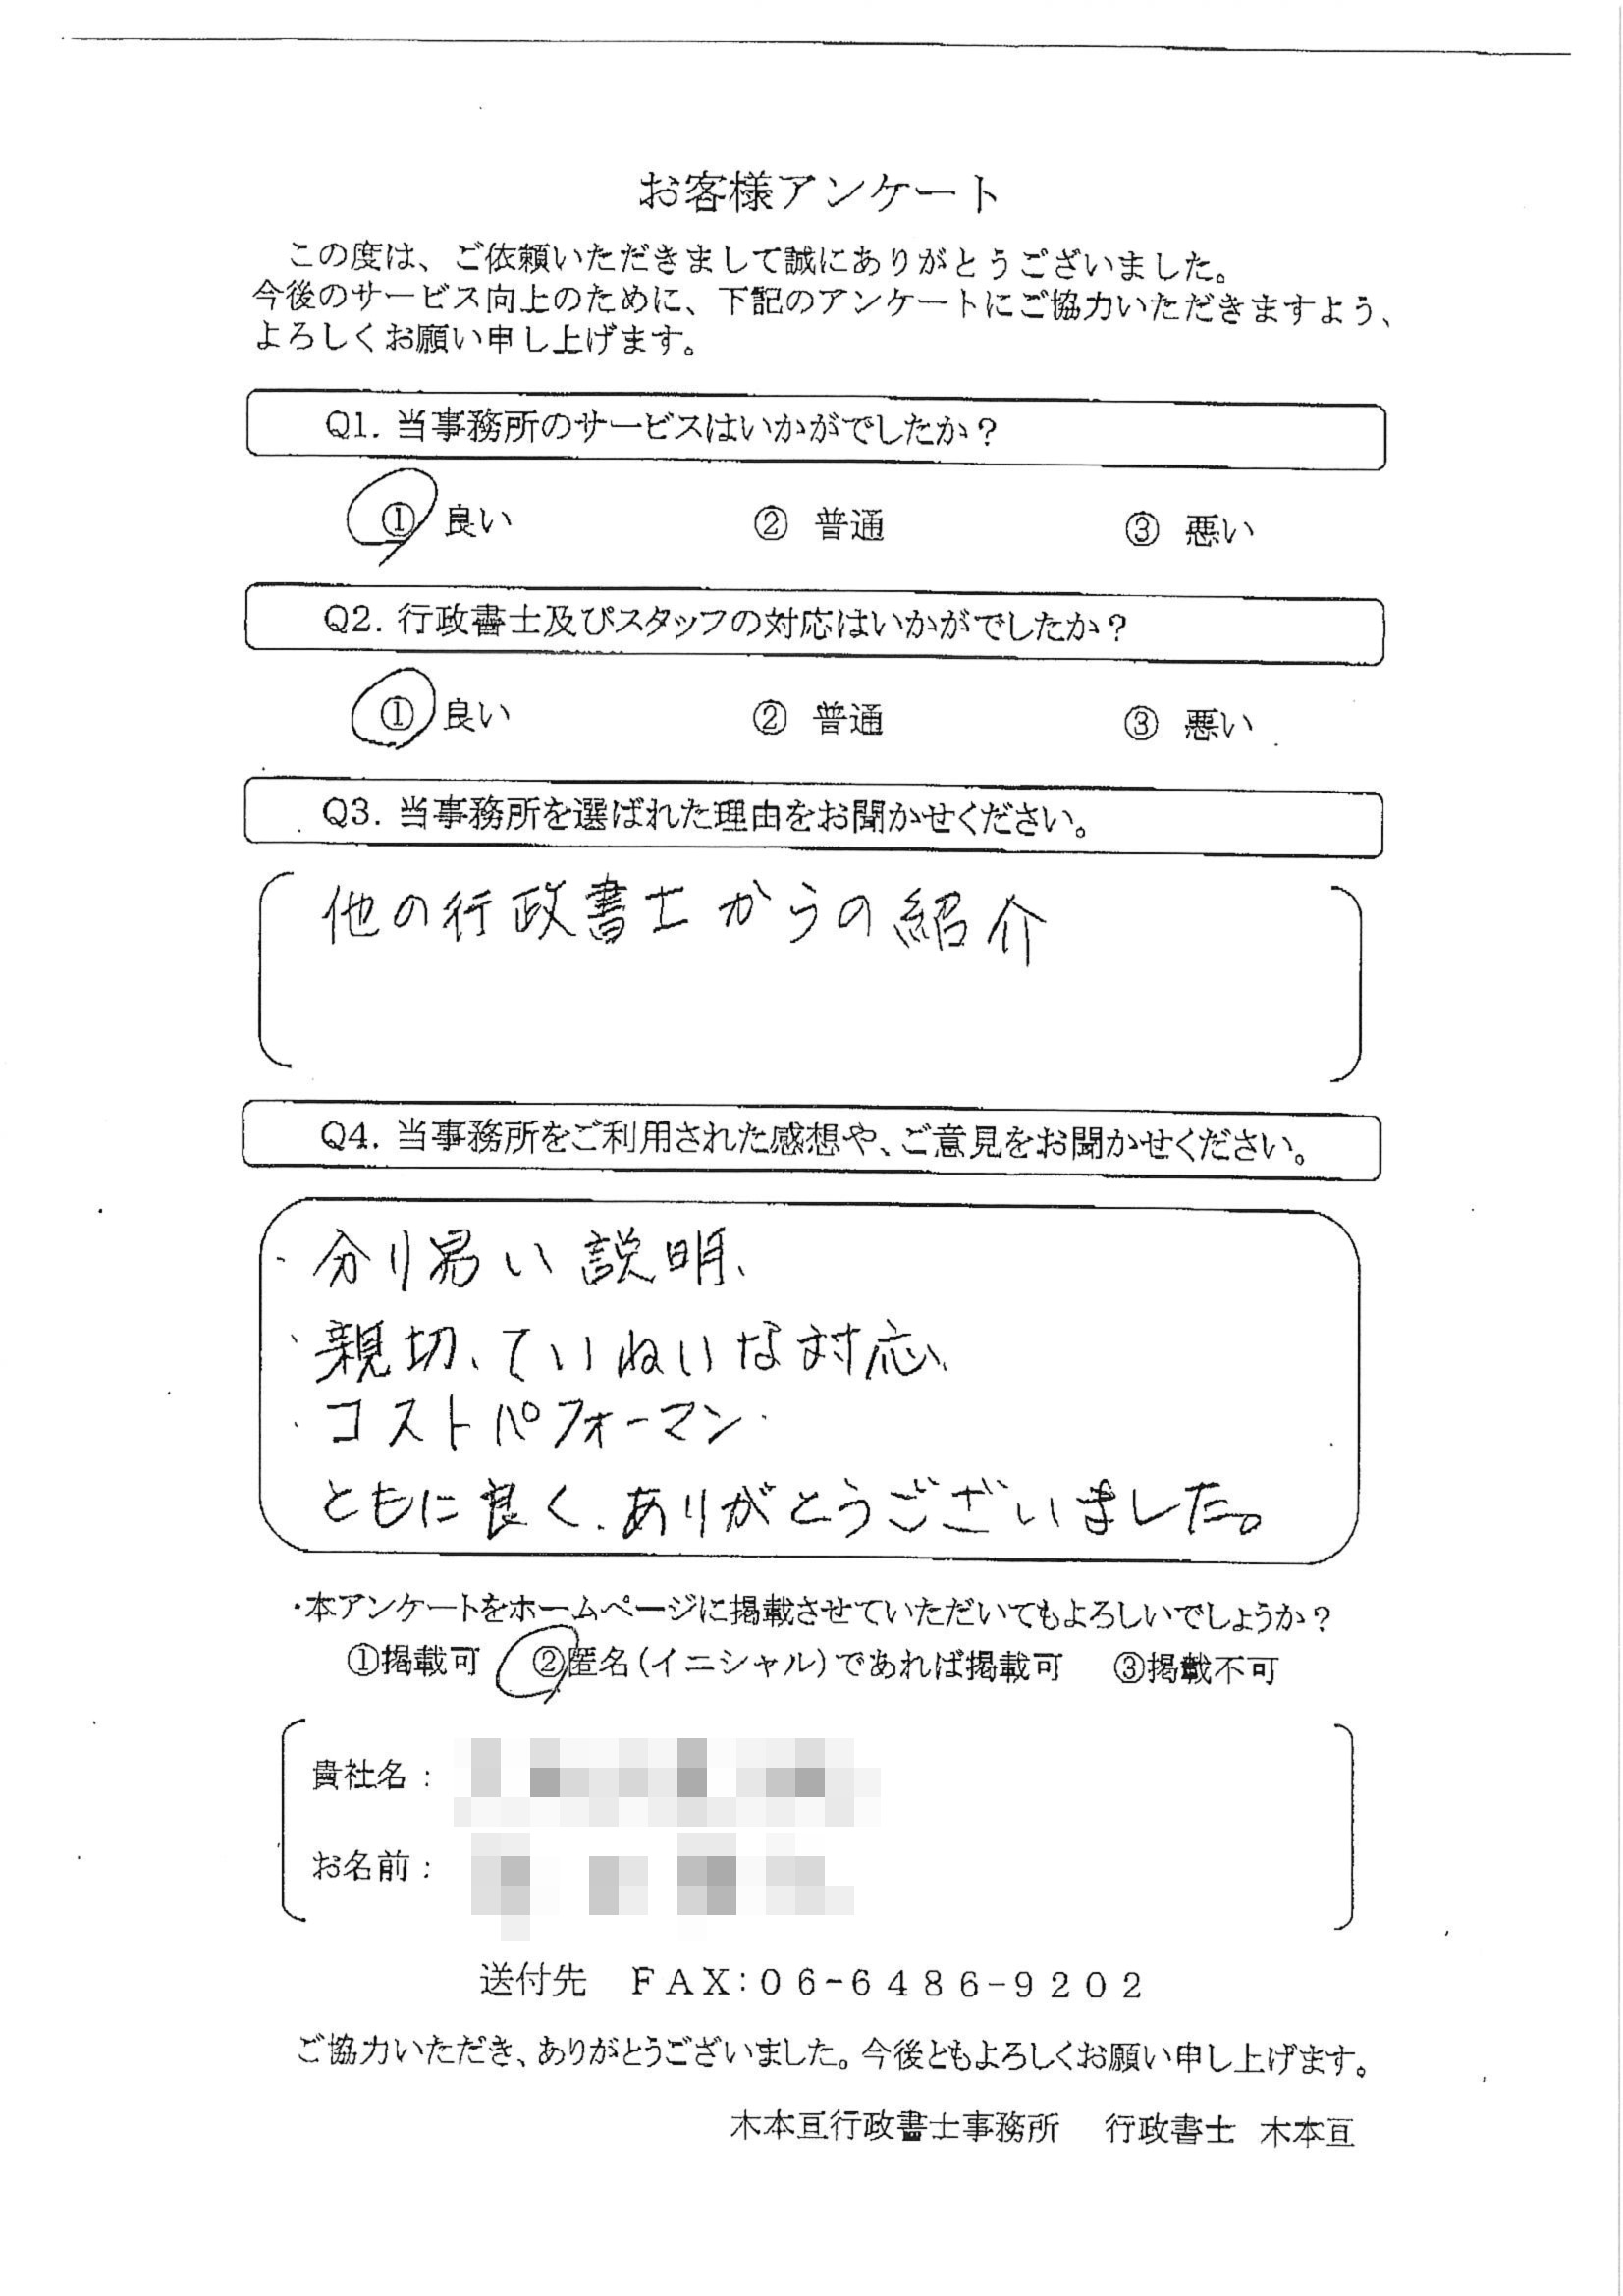 お客様アンケート
この度は、ご依頼いただきまして誠にありがとうございました。
今後のサービス向上のために、下記のアンケートにご協力いただきますよう、
よろしくお願い申し上げます。
Q1. 当事務所のサービスはいかがでしたか？
① 良い ② 普通 ③ 悪い
Q2. 行政書士及びスタッフの対応はいかがでしたか？
① 良い ② 普通 ③ 悪い
Q3. 当事務所を選ばれた理由をお聞かせください。
他の行政書士からの紹介
Q4. 当事務所をご利用された感想や、ご意見をお聞かせください。
・分り易い説明、
・親切、ていねいな対応、
・コストパフォーマン
ともに良く、ありがとうございました。
・本アンケートをホームページに掲載させていただいてもよろしいでしょうか？
①掲載可 ②匿名(イニシャル)であれば掲載可 ③掲載不可
貴社名：
お名前：
送付先 FAX:06-6486-9202
ご協力いただき、ありがとうございました。今後ともよろしくお願い申し上げます。
木本亘行政書士事務所 行政書士 木本亘